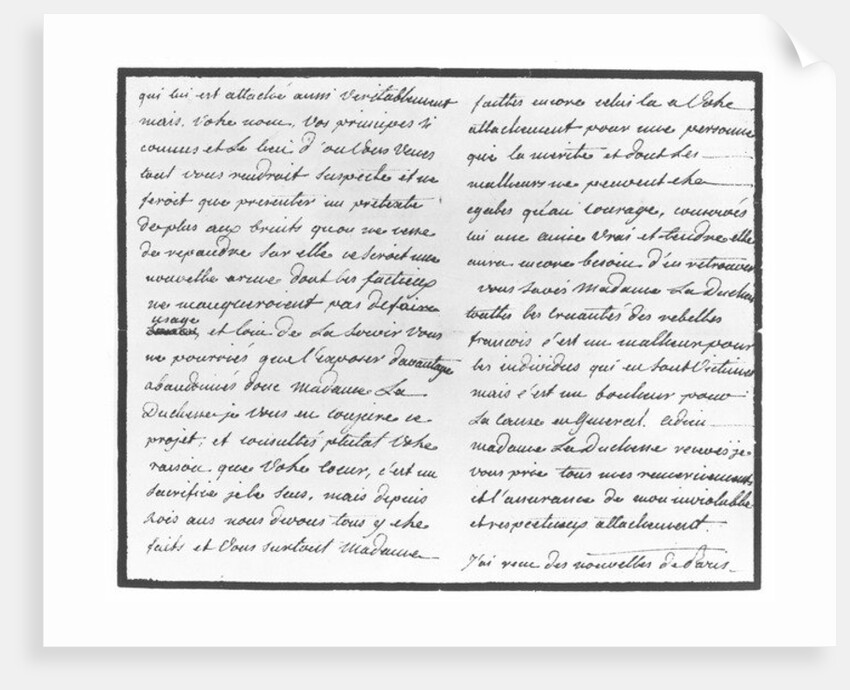 qui lui est attaché aussi veritablement
mais. Votre nom, Vos principes si
connus et Le lieu d'ou Vous Venes
tout vous rendroit suspecte et ne
feroit que presenter un pretexte
de plus aux bruits quon ne cesse
de repandre sur elle ce seroit une
nouvelle arme dont les factieux
ne manqueroient pas defaire
usage
et loin de La servir Vous
ne pourriés que l'exposer davantage
abandonnés donc Madame La
Duchesse je vous en conjure ce
projet; et consultés plutat Votre
raison que Votre Coeur, c'est un
sacrifice je le sens, mais depuis
trois ans nous devons tous y etre
faits et Vous surtout Madame
faittes encore celui la a Votre
attachement pour une personne
qui la merite et dont Les
malheurs ne peuvent etre
egalés qu'au Courage, conservés
lui une amie Vrai et tendre elle
aura encore besoin d'en retrouver
vous savés Madame La Duchesse
touttes les cruautés des rebelles
francois c'est un malheur pour
les individus qui en sont Victimes
mais c'est un bonheur pour
La Cause en General. adieu
madame La Duchesse recevés je
vous prie tous mes remerciements
et l'assurance de mon inviolable
et respectueux attachement.
J'ai recu des nouvelles de Paris